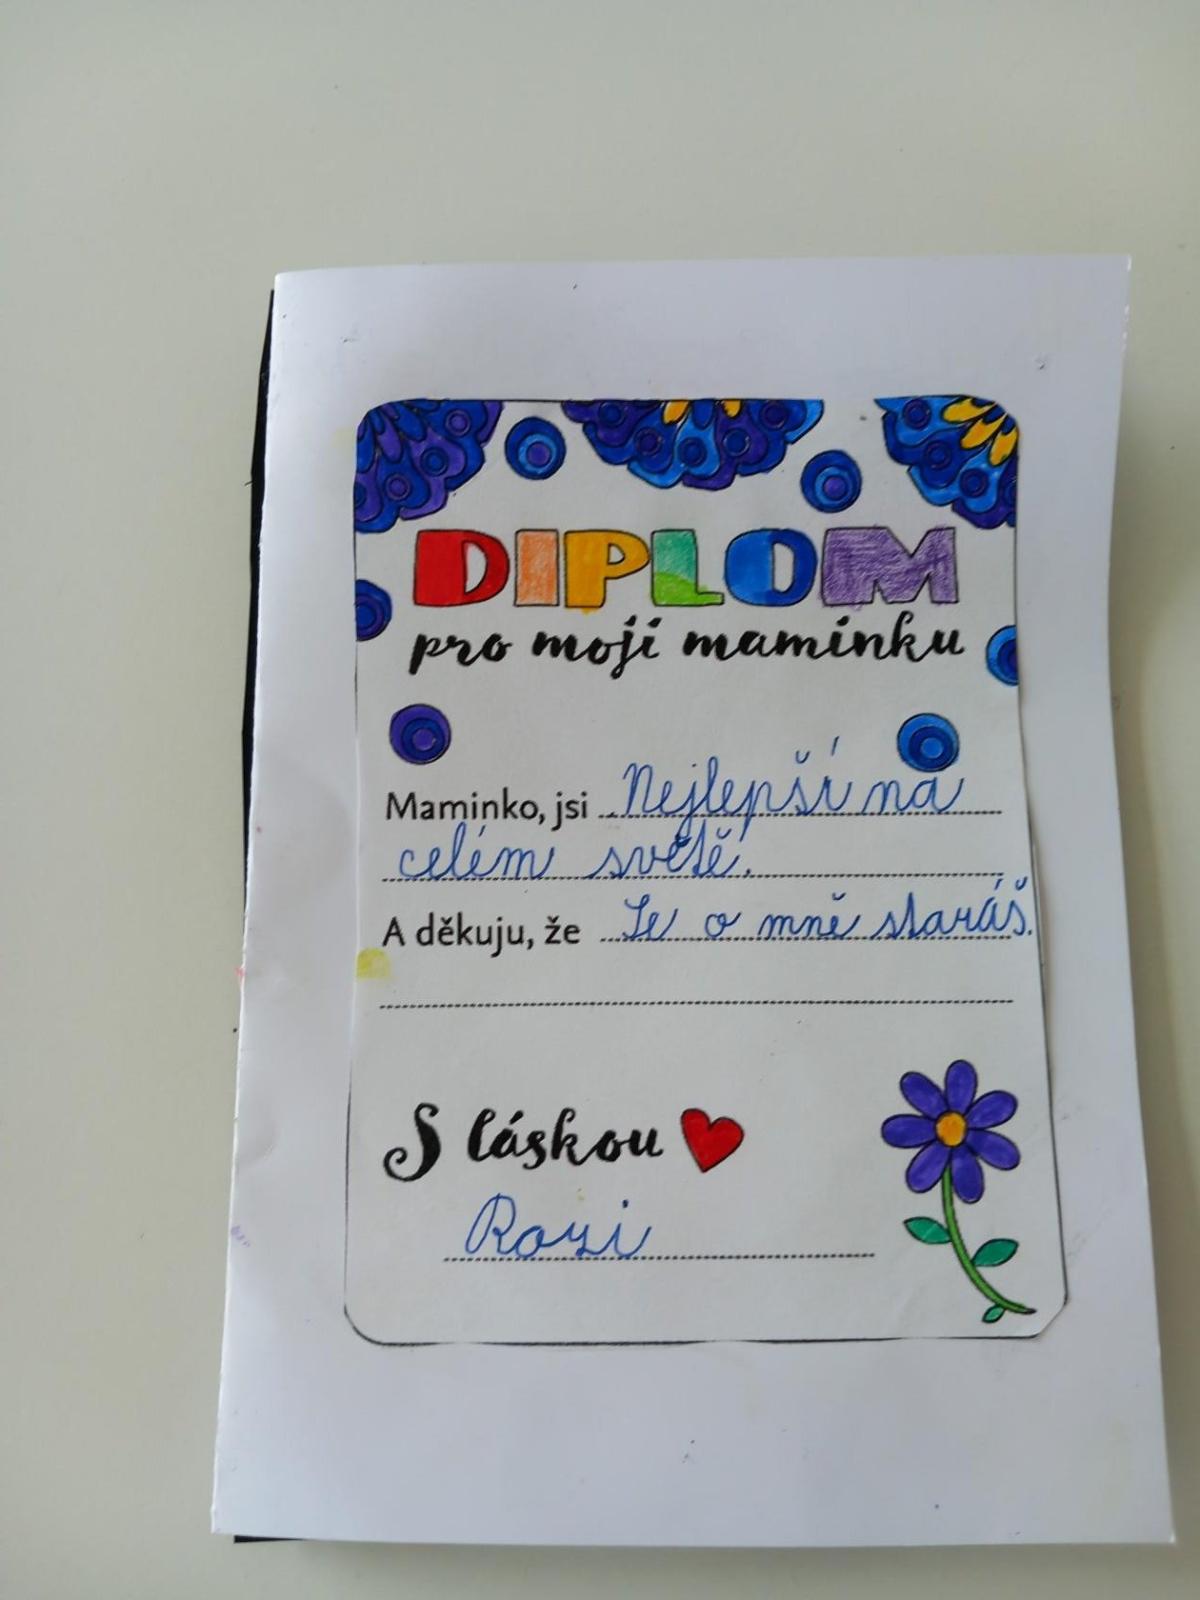 DIPLOM
pro moji maminku
Maminko, jsi Nejlepší na
celém světě.
A děkuju, že Se o mně staráš.
S láskou
Rozi